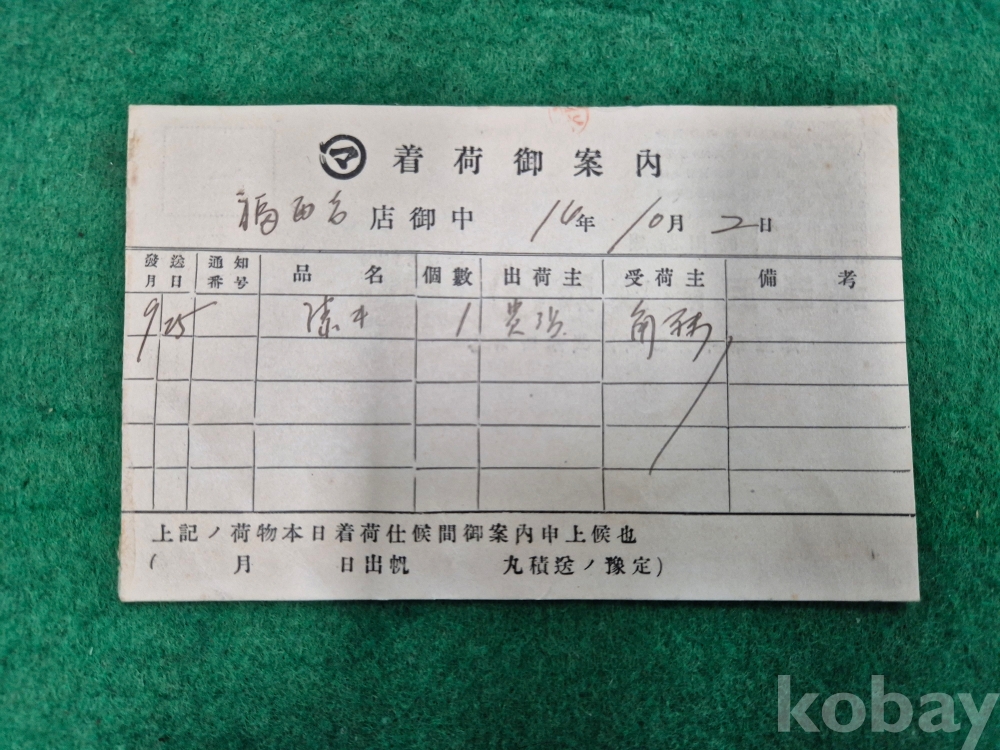 マ 着荷御案內
福西 店御中 14年 10月 2日
發送月日 通知番号 品名 個數 出荷主 受荷主 備考
9 25 1
上記ノ荷物本日着荷仕候間御案內申上候也
( 月 日出帆 丸積送ノ豫定)
kobay